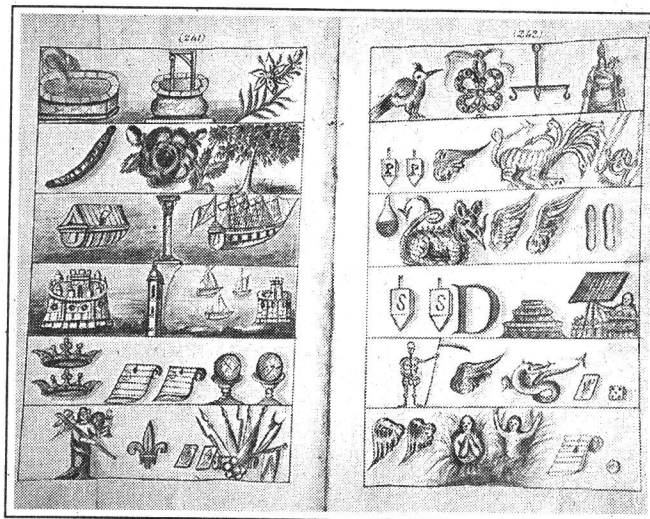 (241)
(242)
P P
S S D